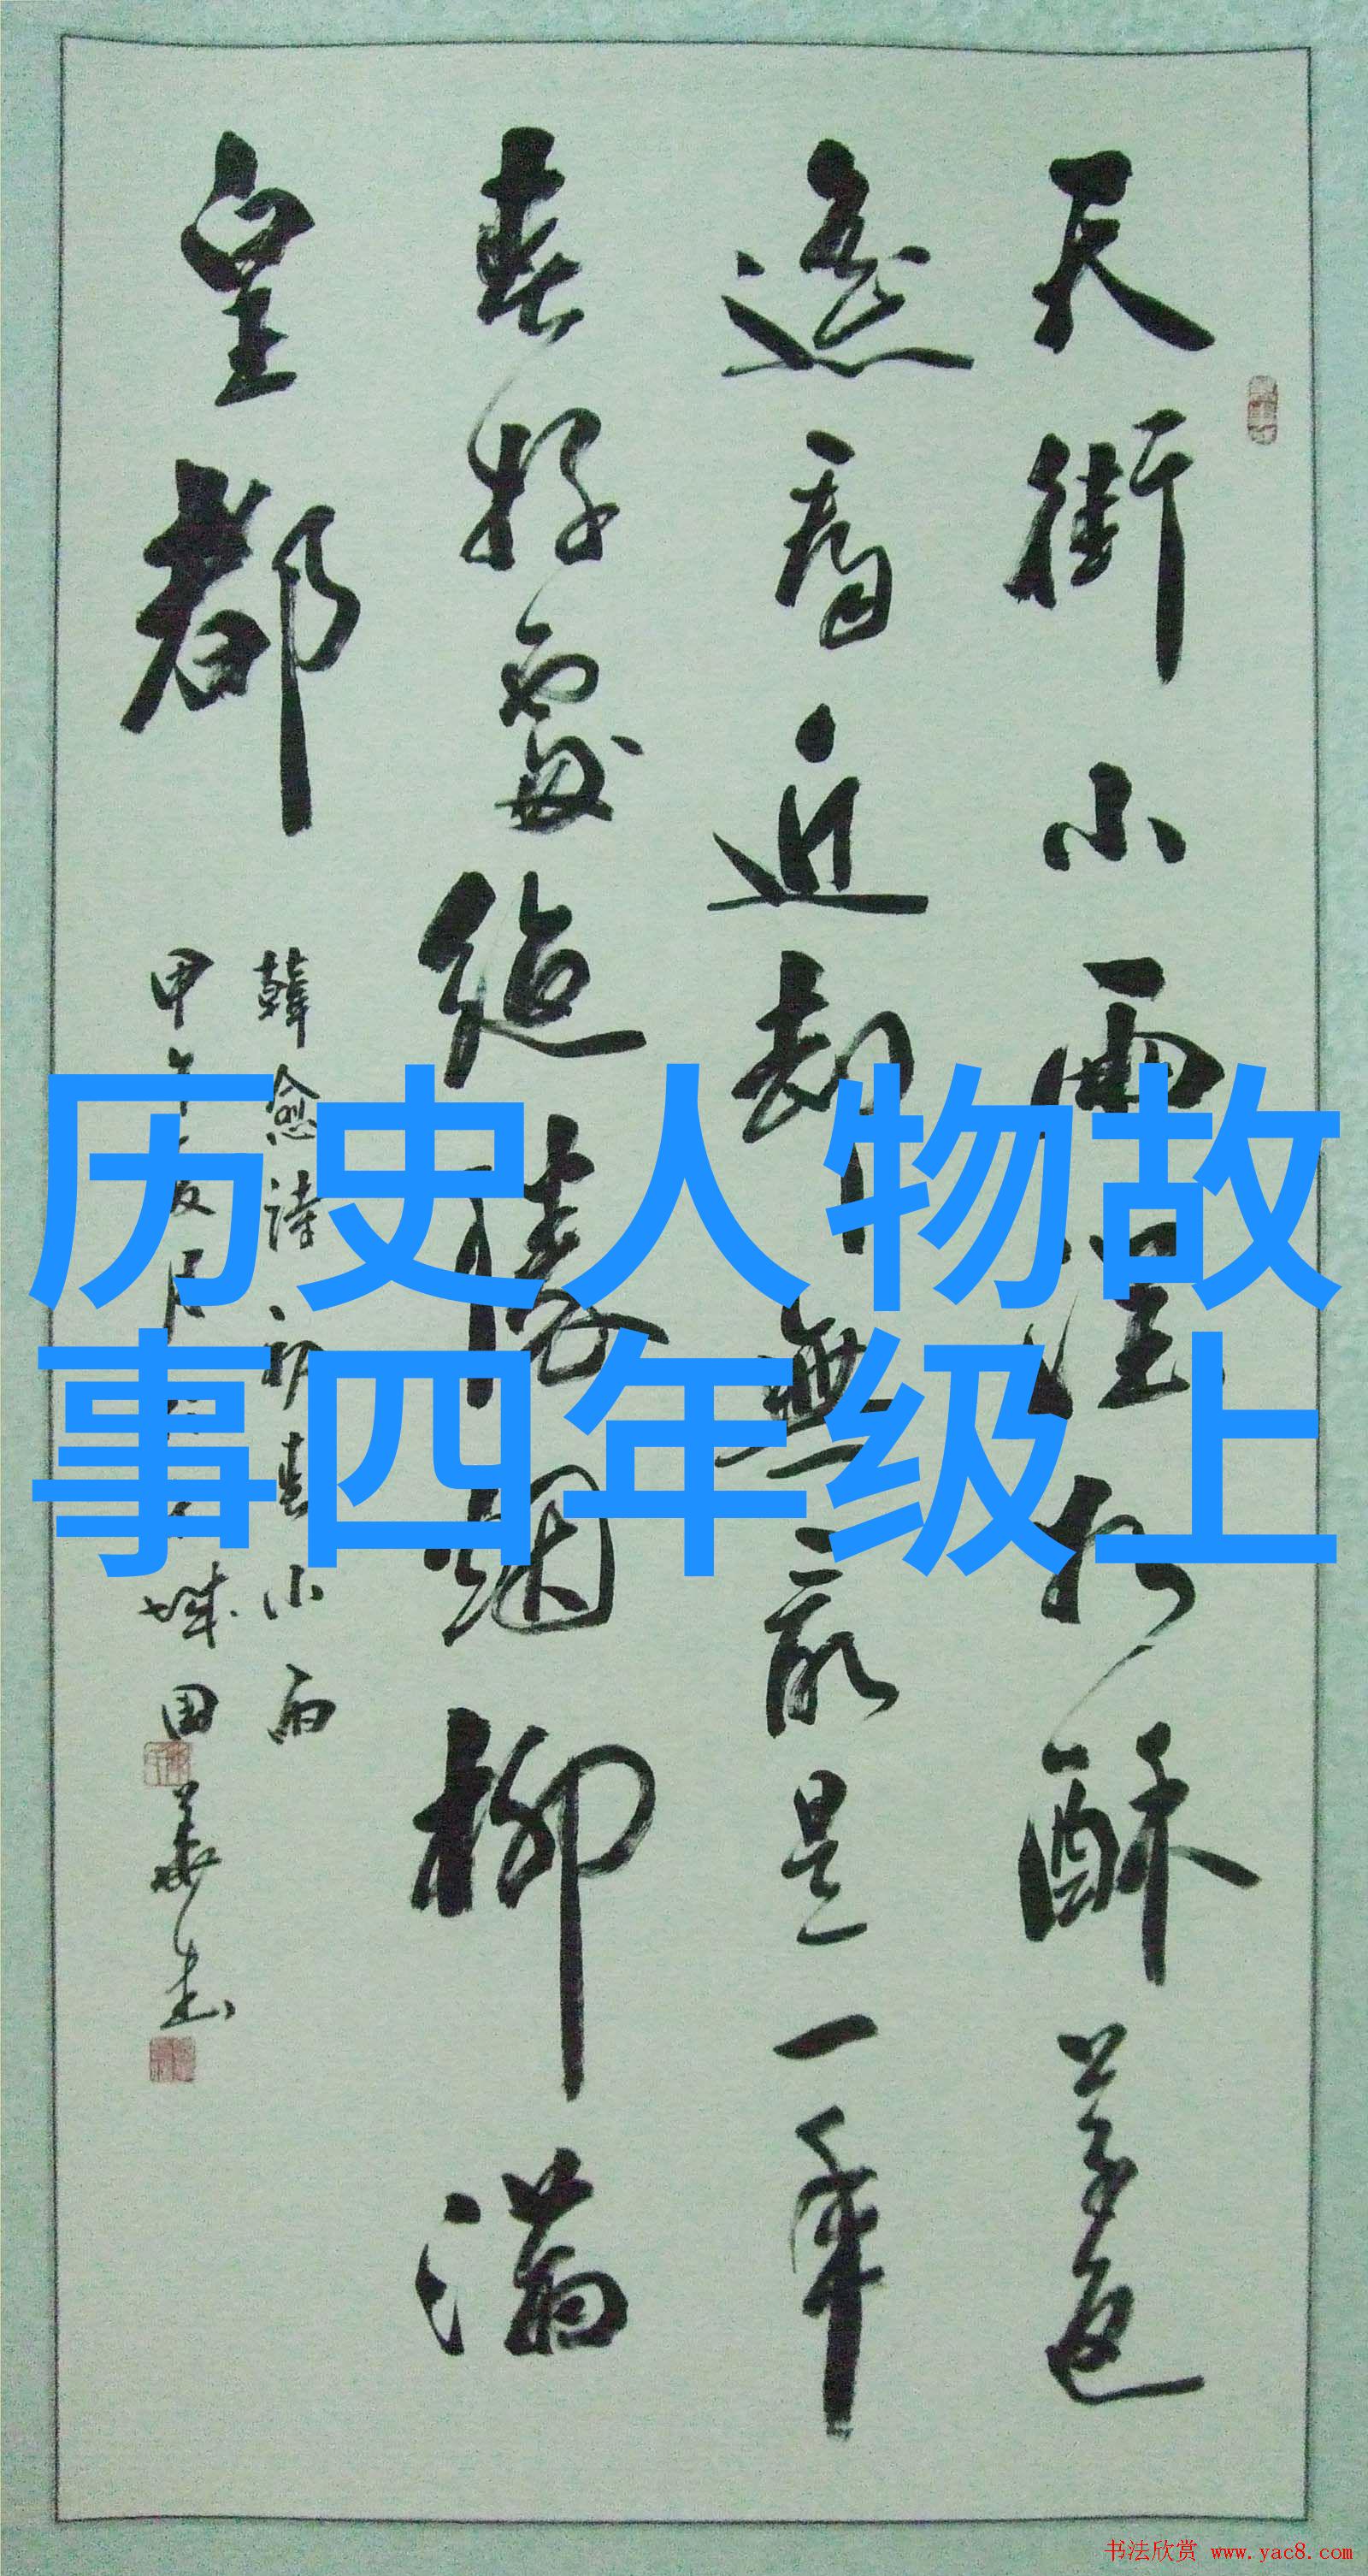 天街小雨潤酥草色
遥看近却無最是一年
春好處絶勝烟柳滿
皇都
韓愈詩初春小雨
甲午夏月城国華书
历史人物故
事四年级上
书法欣赏 www.yac8.com